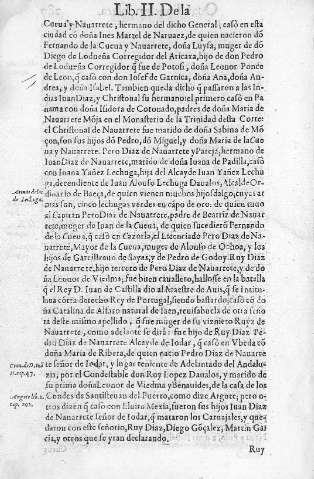 Lib. II. De la
Cueua y Nauarrete, hermano del dicho General, casò en esta
ciudad cõ doña Ines Martel de Naruaez, de quien nacieron dõ
Fernando de la Cueua y Nauarrete, doña Luysa, muger de dõ
Diego de Lodueña Corregidor del Aricaxa, hijo de don Pedro
de Lodueña Corregidor q̃ fue de Potosi, doña Leonor Ponce
de Leon, q̃ casò con don Iosef de Garnica, doña Ana, doña An-
drea, y doña Isabel. Tambien queda dicho q̃ passaron a las In-
dias Iuan Diaz, y Christoual su hermano: el primero casò en Pa
nama con doña Isidora de Coronado, padres de doña Maria de
Nauarrete Mõja en el Monasterio de la Trinidad desta Corte:
el Christoual de Nauarrete fue marido de doña Sabina de Mõ
çon, son sus hijos dõ Pedro, dõ Miguel, y doña Maria de la Cue
ua y Nauarrete. Pero Diaz de Nauarrete y Pareja, hermano de
Iuan Diaz de Nauarrete, marido de doña Iuana de Padilla, casò
con Iuana Yañez Lechuga, hija del Alcayde Iuan Yañez Lechu
ga, decendiente de Iuan Alonso Lechuga Daualos, Alcalde Or-
dinario de Baeça, de quien vienen muchos hijosdalgo, cuyas ar
mas son, cinco lechugas verdes en campo de oro: de quien tuuo
al Capitan Pero Diaz de Nauarrete, padre de Beatriz de Nauar
rete, muger de Iuan de la Cueua, de quien sucediò Fernando
de la Cueua, q̃ casò en Caçorla, el Licenciado Pero Diaz de Na-
uarrete, Mayor de la Cueua, muger de Alonso de Ochoa, y los
hijos de Garcilasso de Sayas, y de Pedro de Godoy. Ruy Diaz
de Nauarrete, hijo tercero de Pero Diaz de Nauarrete, y de do
ña Leonor de Viedma, fue buen cauallero, hallòse en la batalla
q̃ el Rey D. Iuan de Castilla dio al Maestre de Auis, q̃ se intitu-
lò
Catalina de Alfaro natural de Iaen,
Pedro Diaz de Nauarrete Alcayde de Iodar, q̃ casò en Vbeda cõ
doña Maria de Ribera, de quien nacio Pedro Diaz de Nauarre
te señor de Iodar, y lugarteniente de Adelantado del Andalu-
zia, por el Condestable don Ruy Lopez Daualos, y marido de
su prima doña Leonor de Viedma y Benauides, de la casa de los
Condes de Santisteuan del Puerto, como dize Argote, pero o-
tros dizen q̃ casò con Eluira Mexia, fueron sus hijos Iuan Diaz
de Nauarrete señor de Iodar, q̃ mataron los Caruajales, y que-
daron con este señorio, Ruy Diaz, Diego Gõçalez, Martin Gar
cia, y otros que se yran declarando.
Ruy
Armas de los
de Lechuga.